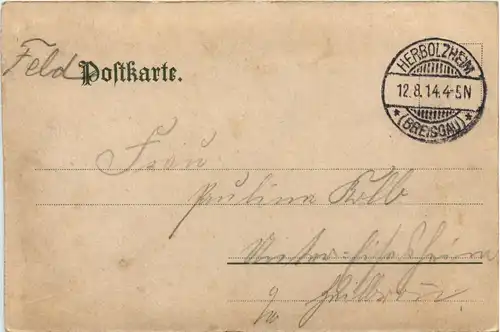 Feld Postkarte.
HERBOLZHEIM
12.8.14.4-5N
* (BREISGAU) *
Frau
Pauline Kolb
Unter-